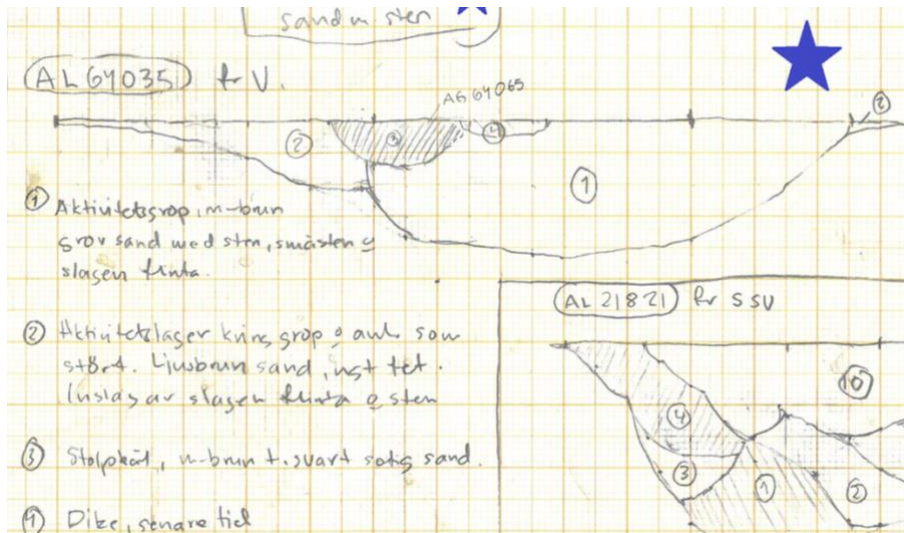 sand m sten
AL 64035 fr V.
AG 64065
2
3
4
1
2
1 Aktivitetsgrop, m-brun
grov sand med sten, småsten o
slagen flinta.
2 Aktivitetslager kring grop o anl. som
stört. Ljusbrun sand, ngt tet.
Inslag av slagen flinta o sten
3 Stolphål, m-brun t. svart sotig sand.
4 Dike, senare tid
AL 21821 fr SSV
10
4
3
1
2